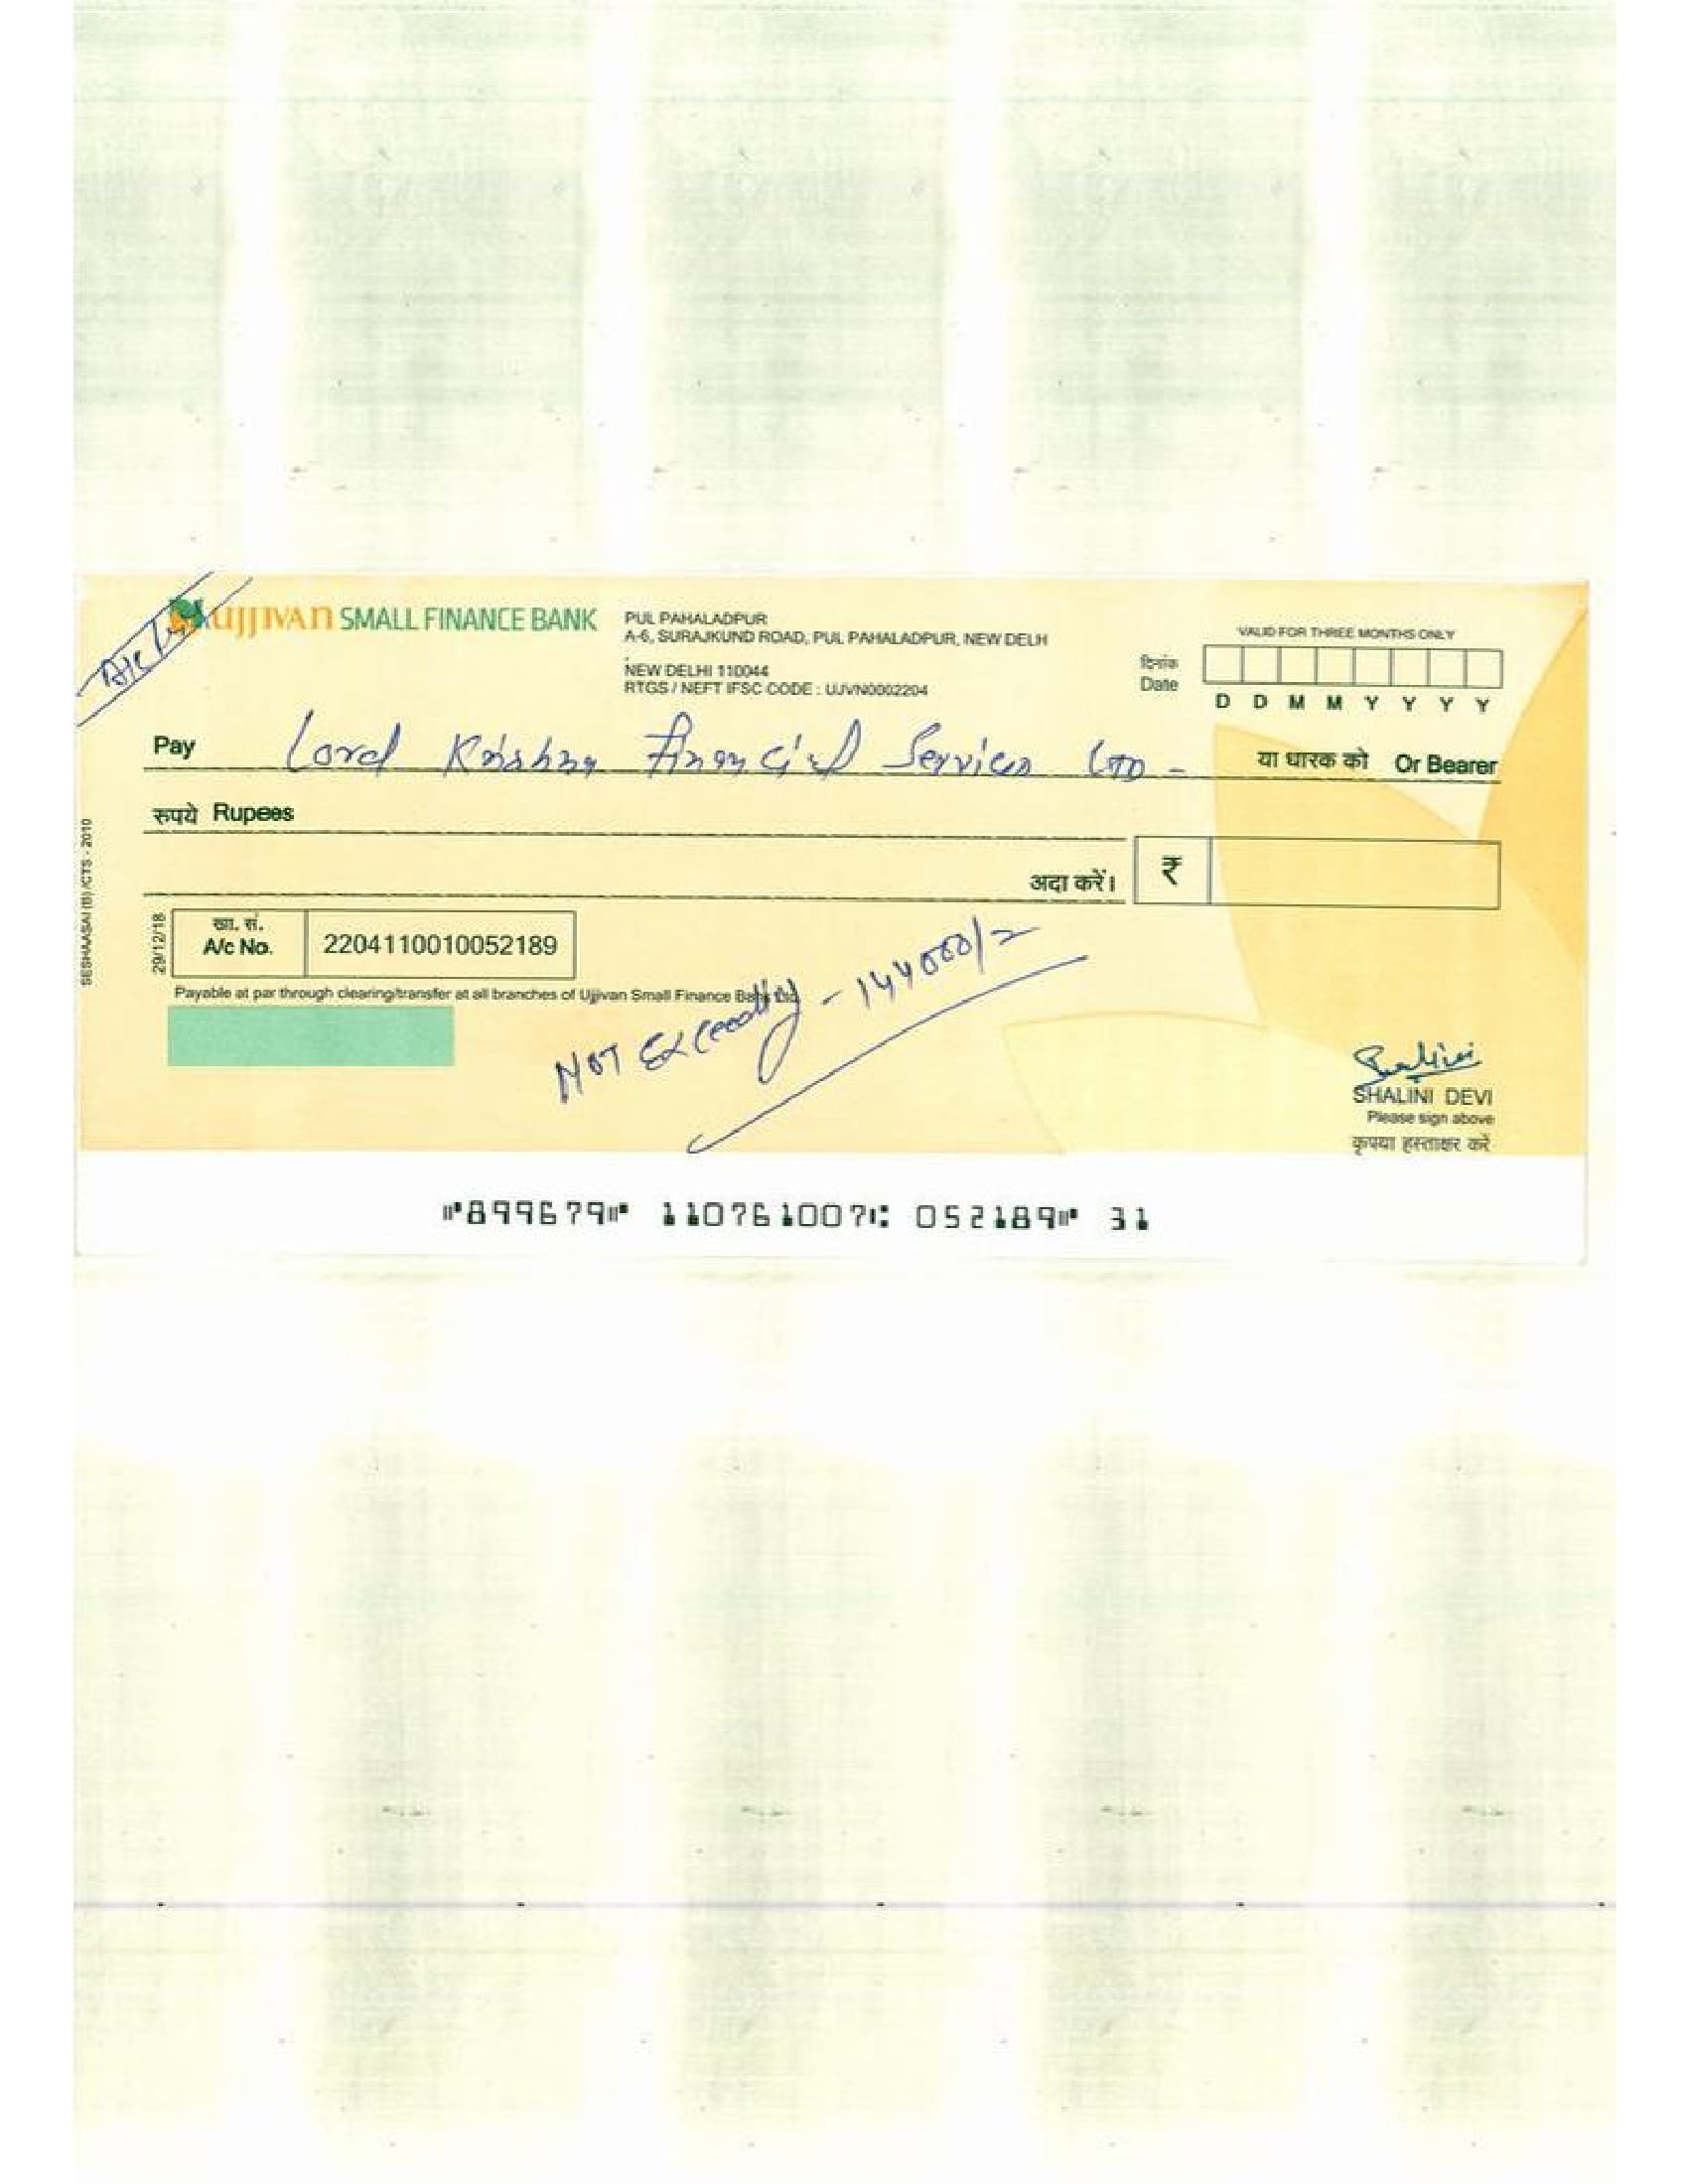 A/c
UJJIVAN SMALL FINANCE BANK
PUL PAHALADPUR
A-6, SURAJKUND ROAD, PUL PAHALADPUR, NEW DELH
.
NEW DELHI 110044
RTGS / NEFT IFSC CODE : UJVN0002204
VALID FOR THREE MONTHS ONLY
दिनांक
Date
D D M M Y Y Y Y
Pay Lord Krishna Financial Services LTD - या धारक को Or Bearer
रुपये Rupees
अदा करें। ₹
SESHAASAI (B) /CTS - 2010
29/12/18
खा. सं.
A/c No. 2204110010052189
Payable at par through clearing/transfer at all branches of Ujjivan Small Finance Bank Ltd
NOT Exceeding - 144000/=
SHALINI DEVI
Please sign above
कृपया हस्ताक्षर करें
⑈899679⑈ 110761007⑆ 052189⑈ 31